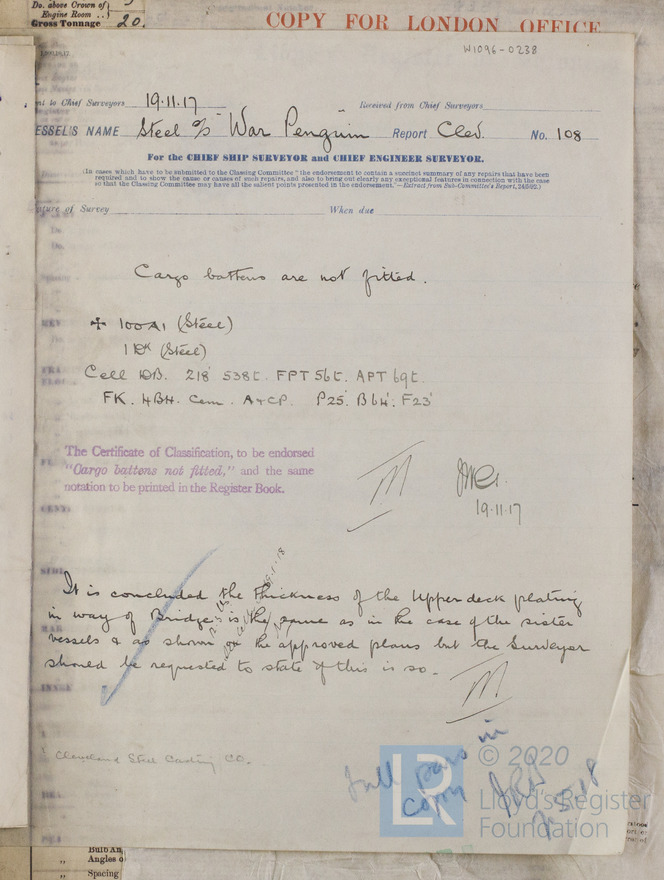 Do. above Crown of
Engine Room ..
Gross Tonnage 20.
COPY FOR LONDON OFFICE
W1096-0238
nt to Chief Surveyors 19.11.17 Received from Chief Surveyors
ESSEL'S NAME Steel S/S "War Penguin" Report Clev. No. 108
For the CHIEF SHIP SURVEYOR and CHIEF ENGINEER SURVEYOR.
(In cases which have to be submitted to the Classing Committee "the endorsement to contain a succinct summary of any repairs that have been
required and to show the cause or causes of such repairs, and also to bring out clearly any exceptional features in connection with the case
so that the Classing Committee may have all the salient points presented in the endorsement."—Extract from Sub-Committee's Report, 24/6/02.)
ature of Survey When due
Cargo battens are not fitted.
✠ 100A1 (Steel)
1 Dk (Steel)
Cell DB. 218' 538t. FPT 56t. APT 69t.
FK. 4BH. Cem. A&CP. P25'. B64'. F23'
The Certificate of Classification, to be endorsed
"Cargo battens not fitted," and the same
notation to be printed in the Register Book.
19.11.17
It is concluded the thickness of the Upper deck plating
in way of Bridge is the same as in the case of the sister
vessels & as shown on the approved plans but the Surveyor
should be requested to state if this is so.
Cleveland Steel Casting Co.
full pars in
copy
LR
© 2020
Lloyd's Register
Foundation
Bulb An
„ Angles o
„ Spacing